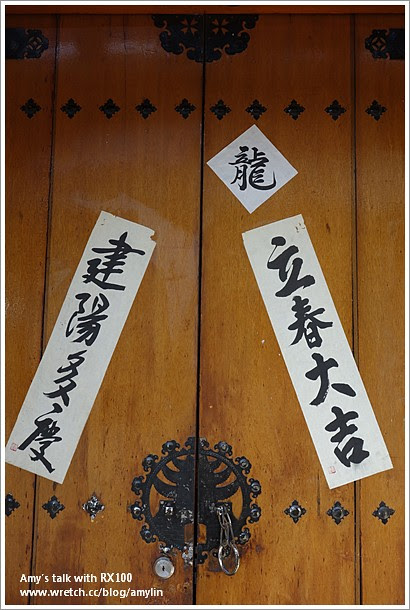 龍
立春大吉
建陽多慶
Amy's talk with RX100
www.wretch.cc/blog/amylin